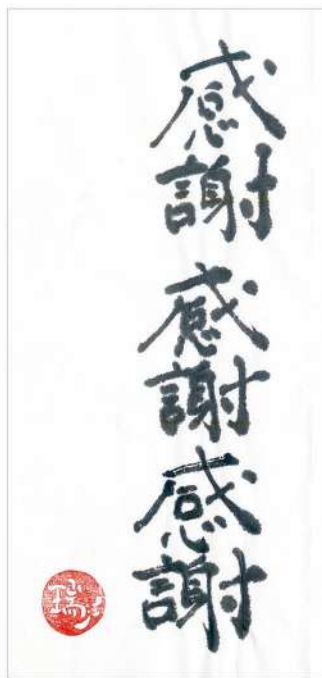 感謝感謝感謝